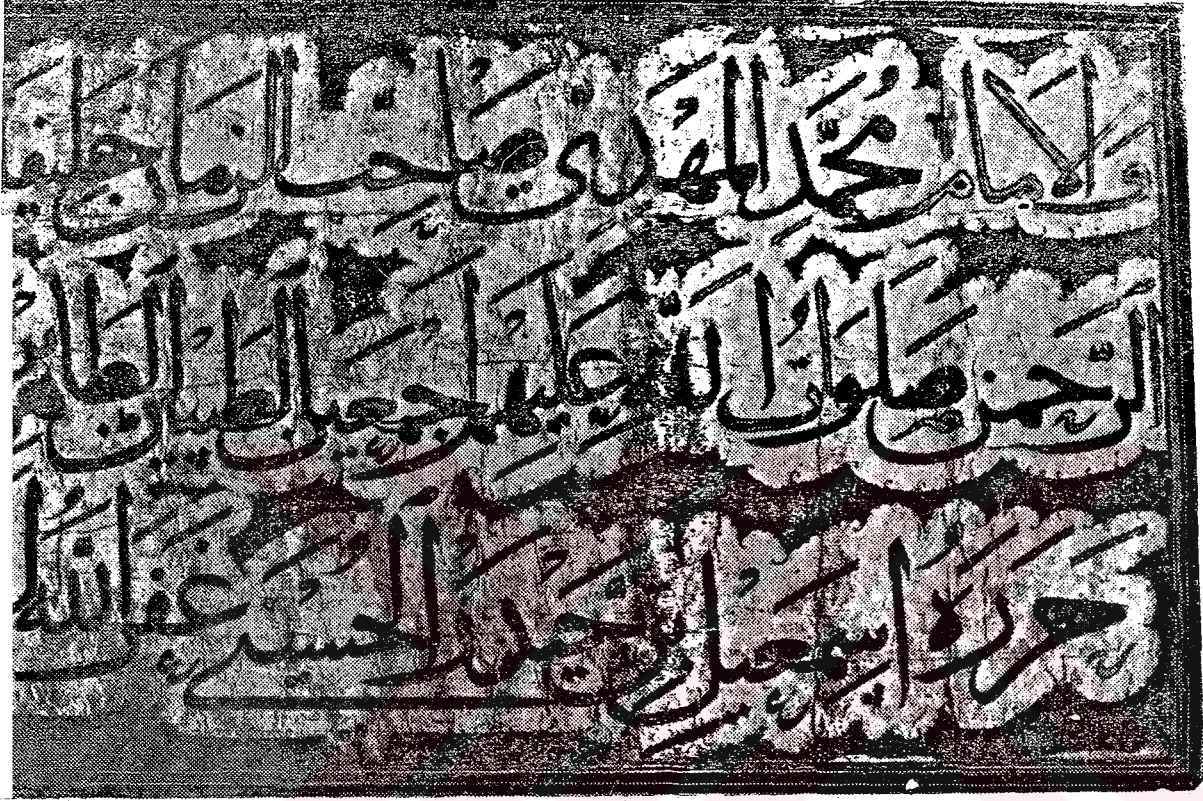 والامام محمد المهدی صاحب الزمان خلیفة
الرحمن صلوات الله علیهم اجمعین الطیبین الطاهرین
حرره اسمعیل بن الحسینی غفر الله